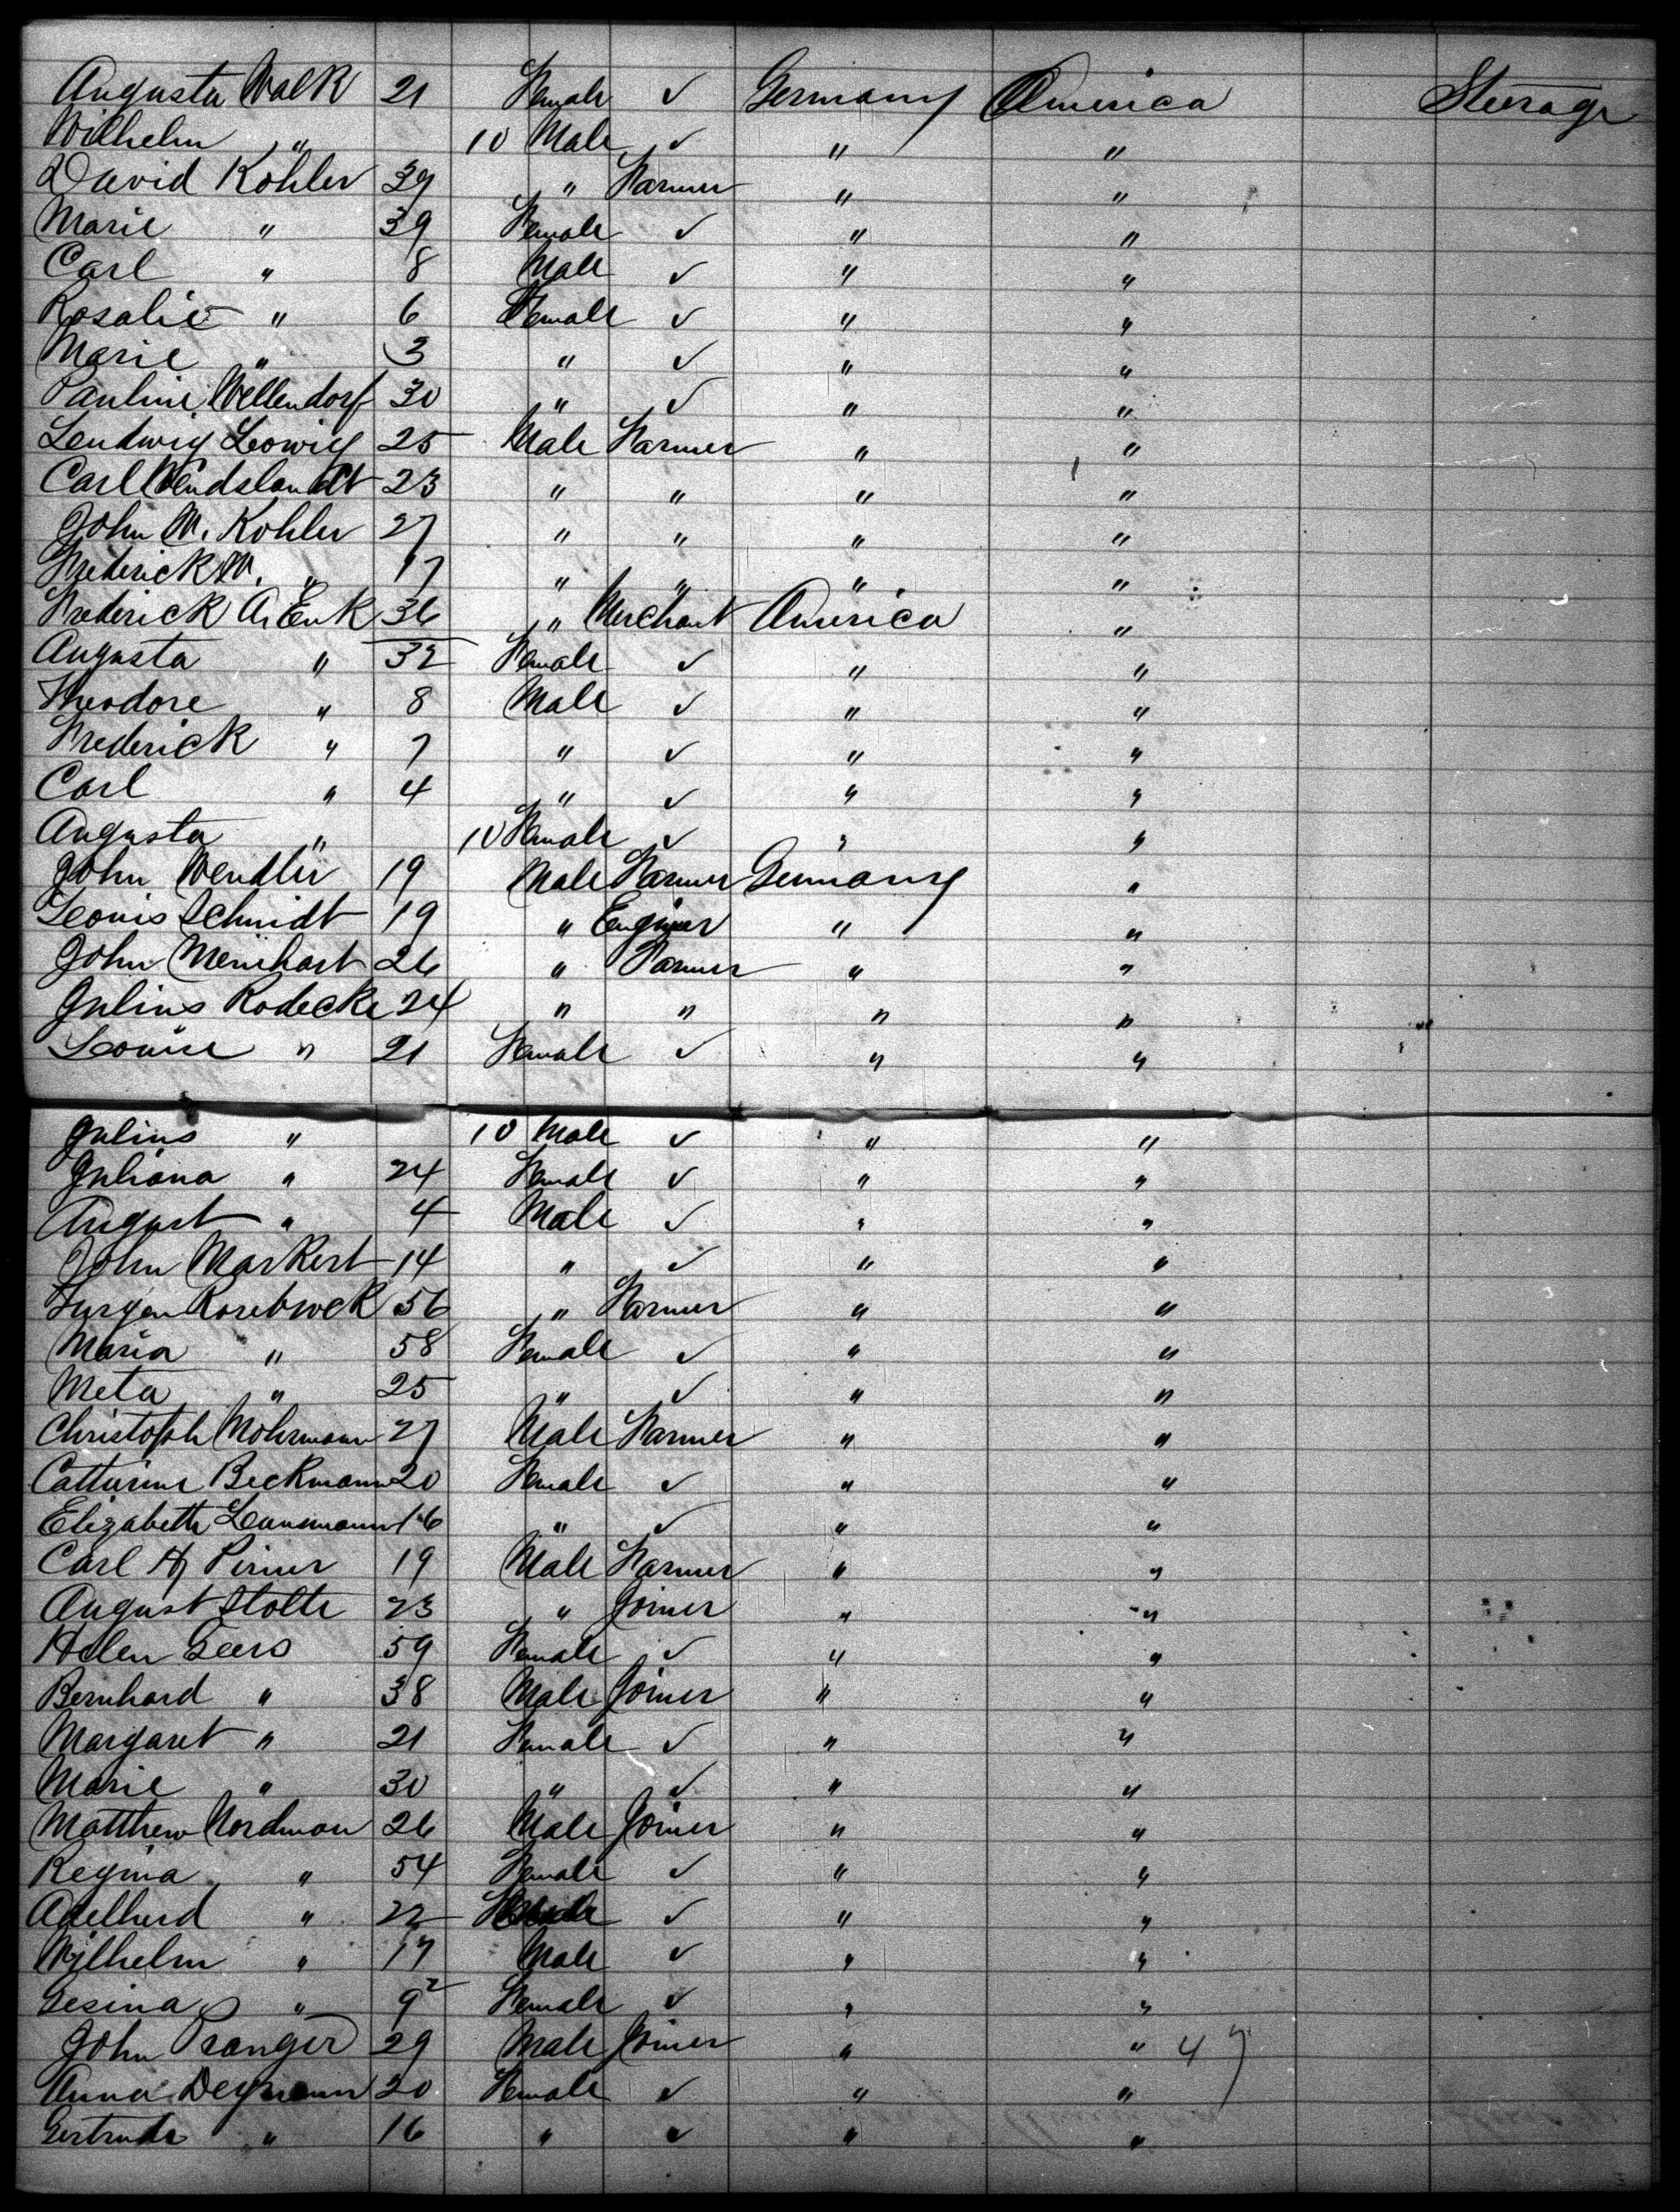 Augusta Walk 21 Female ✓ Germany America Steerage
Wilhelm " 10 Male ✓ " "
David Kohler 39 " Farmer " "
Marie " 39 Female ✓ " "
Carl " 8 Male ✓ " "
Rosalie " 6 Female ✓ " "
Marie " 3 " ✓ " "
Pauline Wellendorf 30 " ✓ " "
Leudwig Lowig 25 Male Farmer " "
Carl Wendslandt 23 " " " "
John M. Kohler 27 " " " "
Frederick M. " 17 " " " "
Frederick A. Enk 36 " Merchant America "
Augusta " 32 Female ✓ " "
Theodore " 8 Male ✓ " "
Frederick " 7 " ✓ " "
Carl " 4 " ✓ " "
Augusta " 10 Female ✓ " "
John Wendler 19 Male Farmer Germany "
Leouis Schmidt 19 " "  "
John Meinhart 26 " Farmer " "
Julius Rodecke 24 " " " "
Louise " 21 Female ✓ " "
Julius " 10 Male ✓ " "
Juliana " 24 Female ✓ " "
August " 4 Male ✓ " "
John Markert 14 " ✓ " "
Jurgen Rosebrock 56 " Farmer " "
Maria " 58 Female ✓ " "
Meta " 25 " ✓ " "
Christoph Mohrmann 27 Male Farmer " "
Catturine Beckmann 20 Female ✓ " "
Elizabeth 16 " ✓ " "
Carl H Pirner 19 Male Farmer " "
August Stolte 23 " Joiner " "
Helen Geers 59 Female ✓ " "
Bernhard " 38 Male Joiner " "
Margaret " 21 Female ✓ " "
Marie " 30 " ✓ " "
Matthew Nordman 26 Male Joiner " "
Regina " 54 Female ✓ " "
Adelherd " 22 ✓ " "
Wilhelm " 17 Male ✓ " "
Gesina " 9 Female ✓ " "
John Pranger 29 Male Joiner " " 47
Anna Deymann 20 Female ✓ " "
Gertrude " 16 " ✓ " "